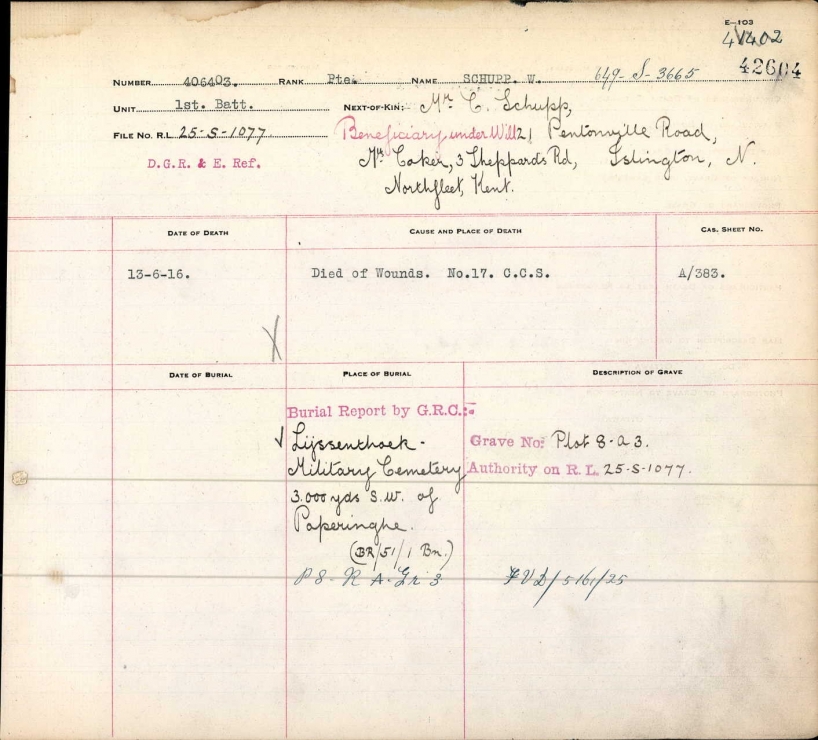 E-103
41402
42604
NUMBER 406403. RANK Pte. NAME SCHUPP. W. 649-S-3665
UNIT 1st. Batt. NEXT-OF-KIN: Mr C. Schupp,
FILE NO. R.L. 25-S-1077. Beneficiary under Will 21 Pentonville Road,
D.G.R. & E. Ref. Coker, 3 Sheppards Rd, Islington, N.
Northfleet, Kent.
DATE OF DEATH CAUSE AND PLACE OF DEATH CAS. SHEET NO.
13-6-16. Died of Wounds. No.17. C.C.S. A/383.
X
DATE OF BURIAL PLACE OF BURIAL DESCRIPTION OF GRAVE
Burial Report by G.R.C.:-
Lijssenthoek - Grave No: Plot 8-a 3.
Military Cemetery Authority on R.L. 25-S-1077.
3.000 yds S.W. of
Poperinghe.
(BR/51/1 Bn.)
P 8 - R A - Gr 3